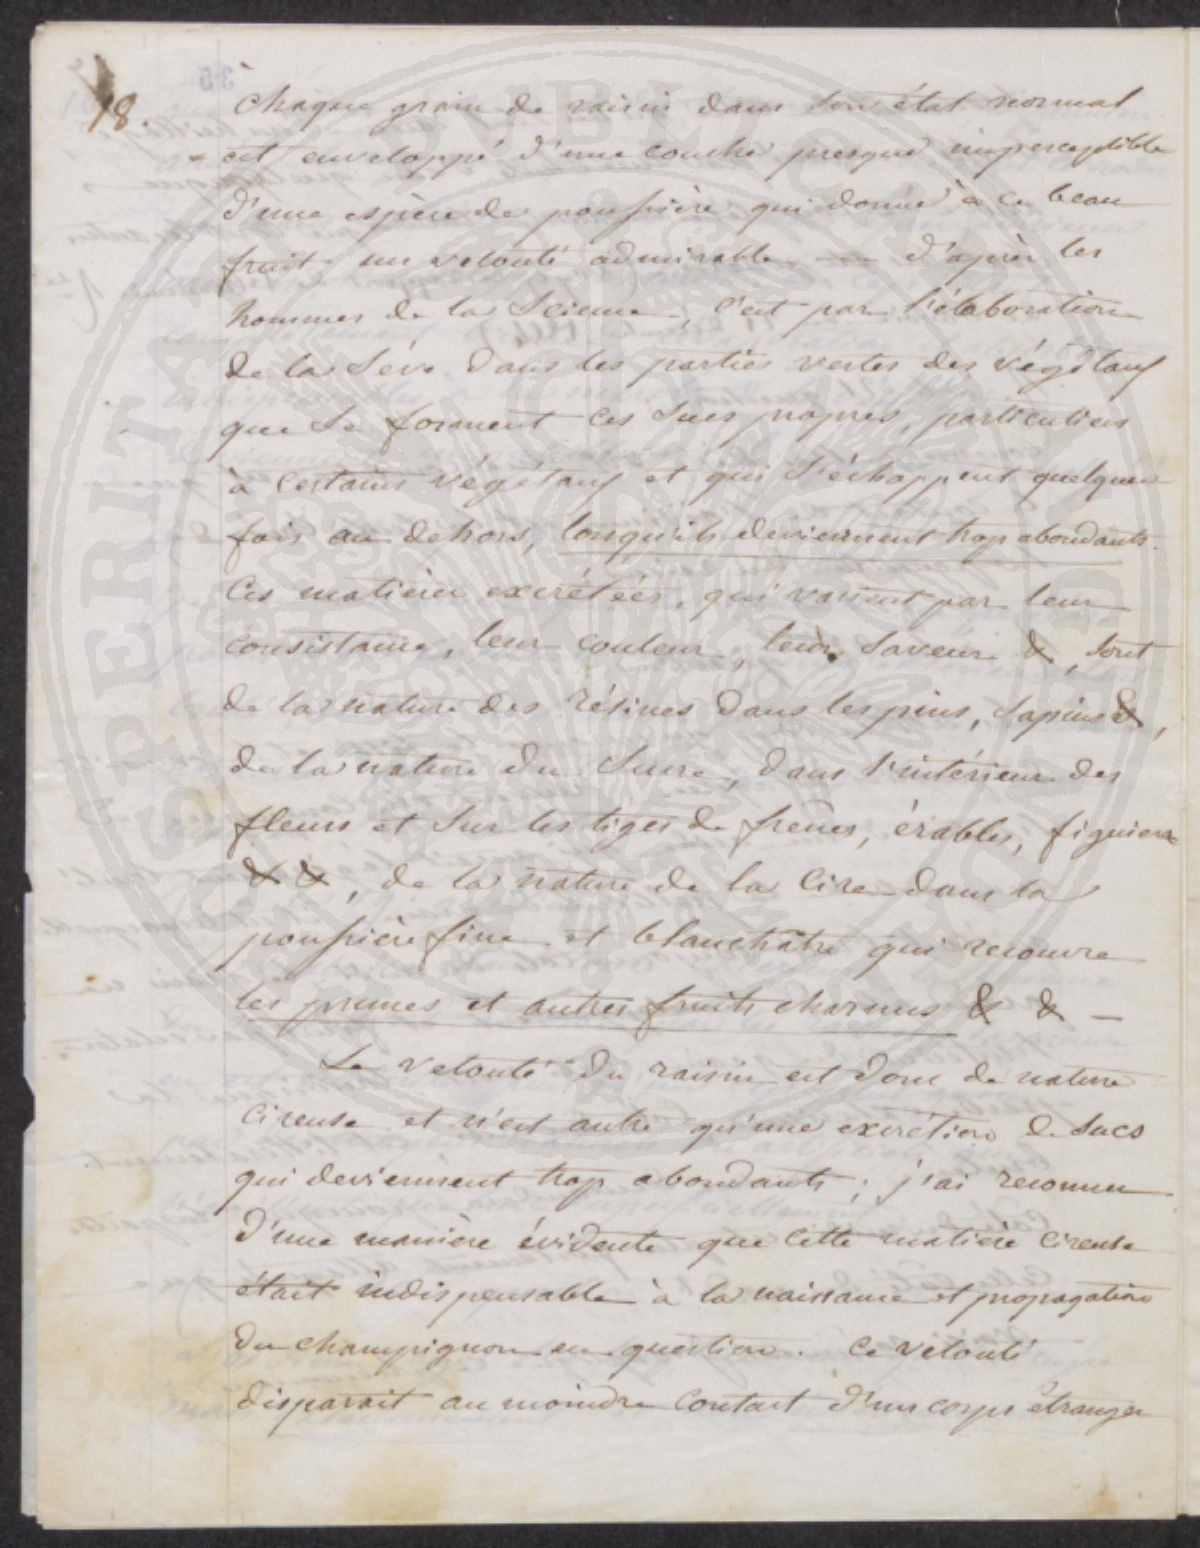 18.
Chaque grain de raisin dans son état normal
est enveloppé d'une couche presque imperceptible
d'une espèce de poussière qui donne à ce beau
fruit un velouté admirable — d'après les
hommes de la Science, c'est par l'élaboration
de la Séve dans les parties vertes des végétaux
que se forment ces sucs propres, particuliers
à certains végétaux et qui s'échappent quelque
fois au dehors, lorsqu'ils deviennent trop abondants.
Ces matières excrétées, qui varient par leur
consistance, leur couleur, leur saveur &, sont
de la nature des résines dans les pins, sapins &,
de la nature du Sucre, dans l'intérieur des
fleurs et sur les tiges de frênes, érables, figuiers
& &, de la nature de la Cire dans la
poussière fine et blanchâtre qui recouvre
les prunes et autres fruits charnus & & —
Le velouté du raisin est donc de nature
cireuse et n'est autre qu'une excrétion de sucs
qui deviennent trop abondants ; j'ai reconnu
d'une manière évidente que cette matière cireuse
était indispensable à la naissance et propagation
du champignon en question. Ce velouté
disparait au moindre contact d'un corps étranger
SPERITAT PUBLICA